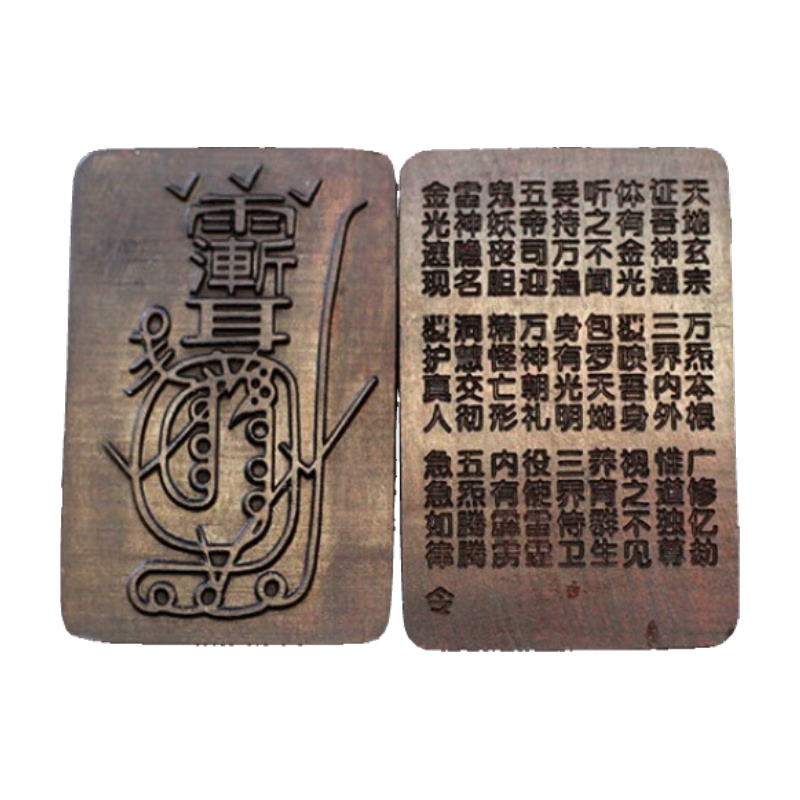 雨漸耳
天地玄宗 万炁本根 广修亿劫
证吾神通 三界内外 惟道独尊
体有金光 映吾身 视之不见
听之不闻 包罗天地 养育群生
受持万遍 身有光明 三界侍卫
五帝司迎 万神朝礼 役使雷霆
鬼妖丧胆 精怪亡形 内有霹雳
雷神隐名 洞慧交彻 五炁腾腾
金光速现 护真人 急急如律 令